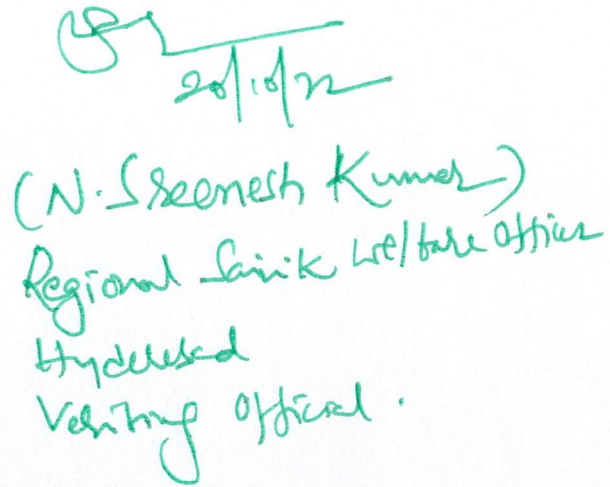 20/10/22
(N. Sreenesh Kumar)
Regional Sainik Welfare Officer
Hyderabad
Visiting Official.